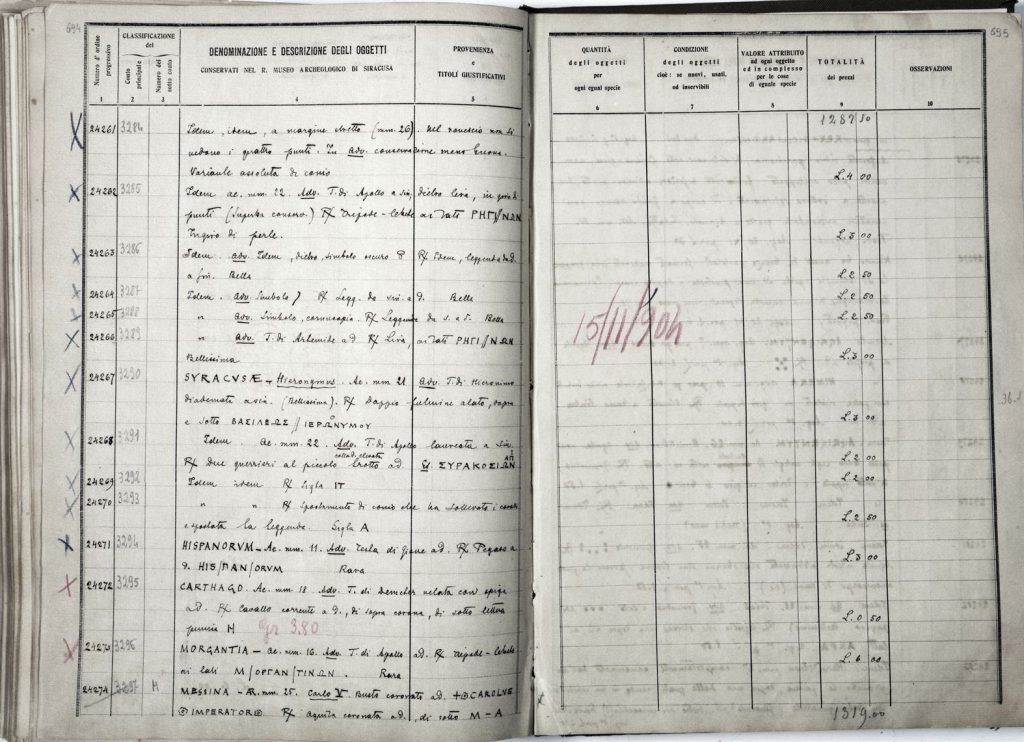 694
CLASSIFICAZIONE
del
Numero d'ordine progressivo
Conto principale
Numero del sotto conto
DENOMINAZIONE E DESCRIZIONE DEGLI OGGETTI
CONSERVATI NEL R. MUSEO ARCHEOLOGICO DI SIRACUSA
PROVENIENZA
e
TITOLI GIUSTIFICATIVI
1 2 3 4 5
24261 3284 Idem, idem, a margine stretto (mm. 26). Nel rovescio non si
vedono i quattro punti. In adv. conservazione meno buona.
Variante assoluta di conio
24262 3285 Idem ae. mm. 22. Adv. T. di Apollo a sin, dietro lira, in giro di
punti (Superba conserv.) R/ Tripode-lebete ai lati ΡΗΓΙ//ΝΩΝ
In giro di perle.
24263 3286 Idem adv. Idem, dietro, simbolo oscuro R/ Idem, leggenda da d.
a sin. Bella
24264 3287 Idem. adv. Simbolo R/ Legg. da sin. a d. Bella
24265 3288 " adv. Simbolo, cornucopia. R/ Leggenda da s. a d. Bella
24266 3289 " adv. T. di Artemide a d R/ Lira, ai lati ΡΗΓΙ//ΝΩΝ
Bellissima
24267 3290 SYRACVSÆ - Hieronymus. Ae. mm 21 adv. T. di Hieronimo
diademata a sin. (Bellissima). R/ Doppio fulmine alato, sopra
e sotto ΒΑΣΙΛΕΩΣ // ΙΕΡΩΝΥΜΟΥ
24268 3291 Idem. Ae. mm 22. Adv. T. di Apollo laureata a sin
R/ Due guerrieri al piccolo trotto a d. Es. ΣΥΡΑΚΟΣΙΩΝ
24269 3292 Idem idem R/ Sigla ΙΤ
24270 3293 " " R/ Spostamento di conio che ha sollevato i
e spostata la leggenda. Sigla A
24271 3294 HISPANORVM - Ae. mm. 11. Adv. Testa di Giove a d. R/ Pegaso a
d. HIS/PAN/ORVM Rara
24272 3295 CARTHAGO. Ae. mm 18. Adv. T. di Demeter velata con spiga
a d. R/ Cavallo corrente a d., di sopra corona, di sotto lettera
punica H gr 3.80
24273 3296 MORGANTIA - ae. mm. 16. Adv. T. di Apollo a d. R/ Tripode-lebete
ai lati Μ/ΟΡΓΑΝ/ΤΙΝΩΝ. Rara
24274 3297 H MESSINA - AR. mm. 25. Carlo V. Busto coronato a d. + CAROLVS
IMPERATOR R/ aquila coronata a d., di sotto M - A
695
QUANTITÀ
degli oggetti
per
ogni egual specie
CONDIZIONE
degli oggetti
cioè: se nuovi, usati,
od inservibili
VALORE ATTRIBUITO
ad ogni oggetto
od in complesso
per le cose
di eguale specie
TOTALITÀ
dei prezzi
OSSERVAZIONI
6 7 8 9 10
1287 50
L. 4 00
L. 3 00
L. 2 50
L. 2 50
L. 2 50
15/11/904
L. 3 00
L. 3 00
L. 2 00
L. 2 00
L. 2 50
L. 3 00
L. 0 50
L. 6 00
1319.00